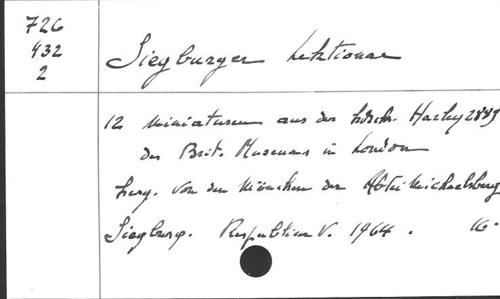 726
432
2
Siegburger Lektionar
12 Miniaturen aus der Hdschr. Harley 2889
des Brit. Museums in London
hrsg. von den Mönchen der Abtei Michaelsberg
Siegburg. Respublica V. 1964. 16.